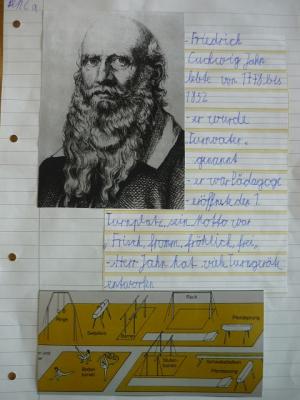 - Friedrich
Ludwig Jahn
lebte von 1778 bis
1852
- er wurde
Turnvater
genannt
- er war Pädagoge
- eröffnete den 1.
Turnplatz, sein Motto war
Frisch, fromm, fröhlich, frei,
- Herr Jahn hat viele Turngeräte
entworfen
Reck
Ringe
Pferdsprung
Barren
Boden-
turnen
Stufen-
barren
Schwebebalken